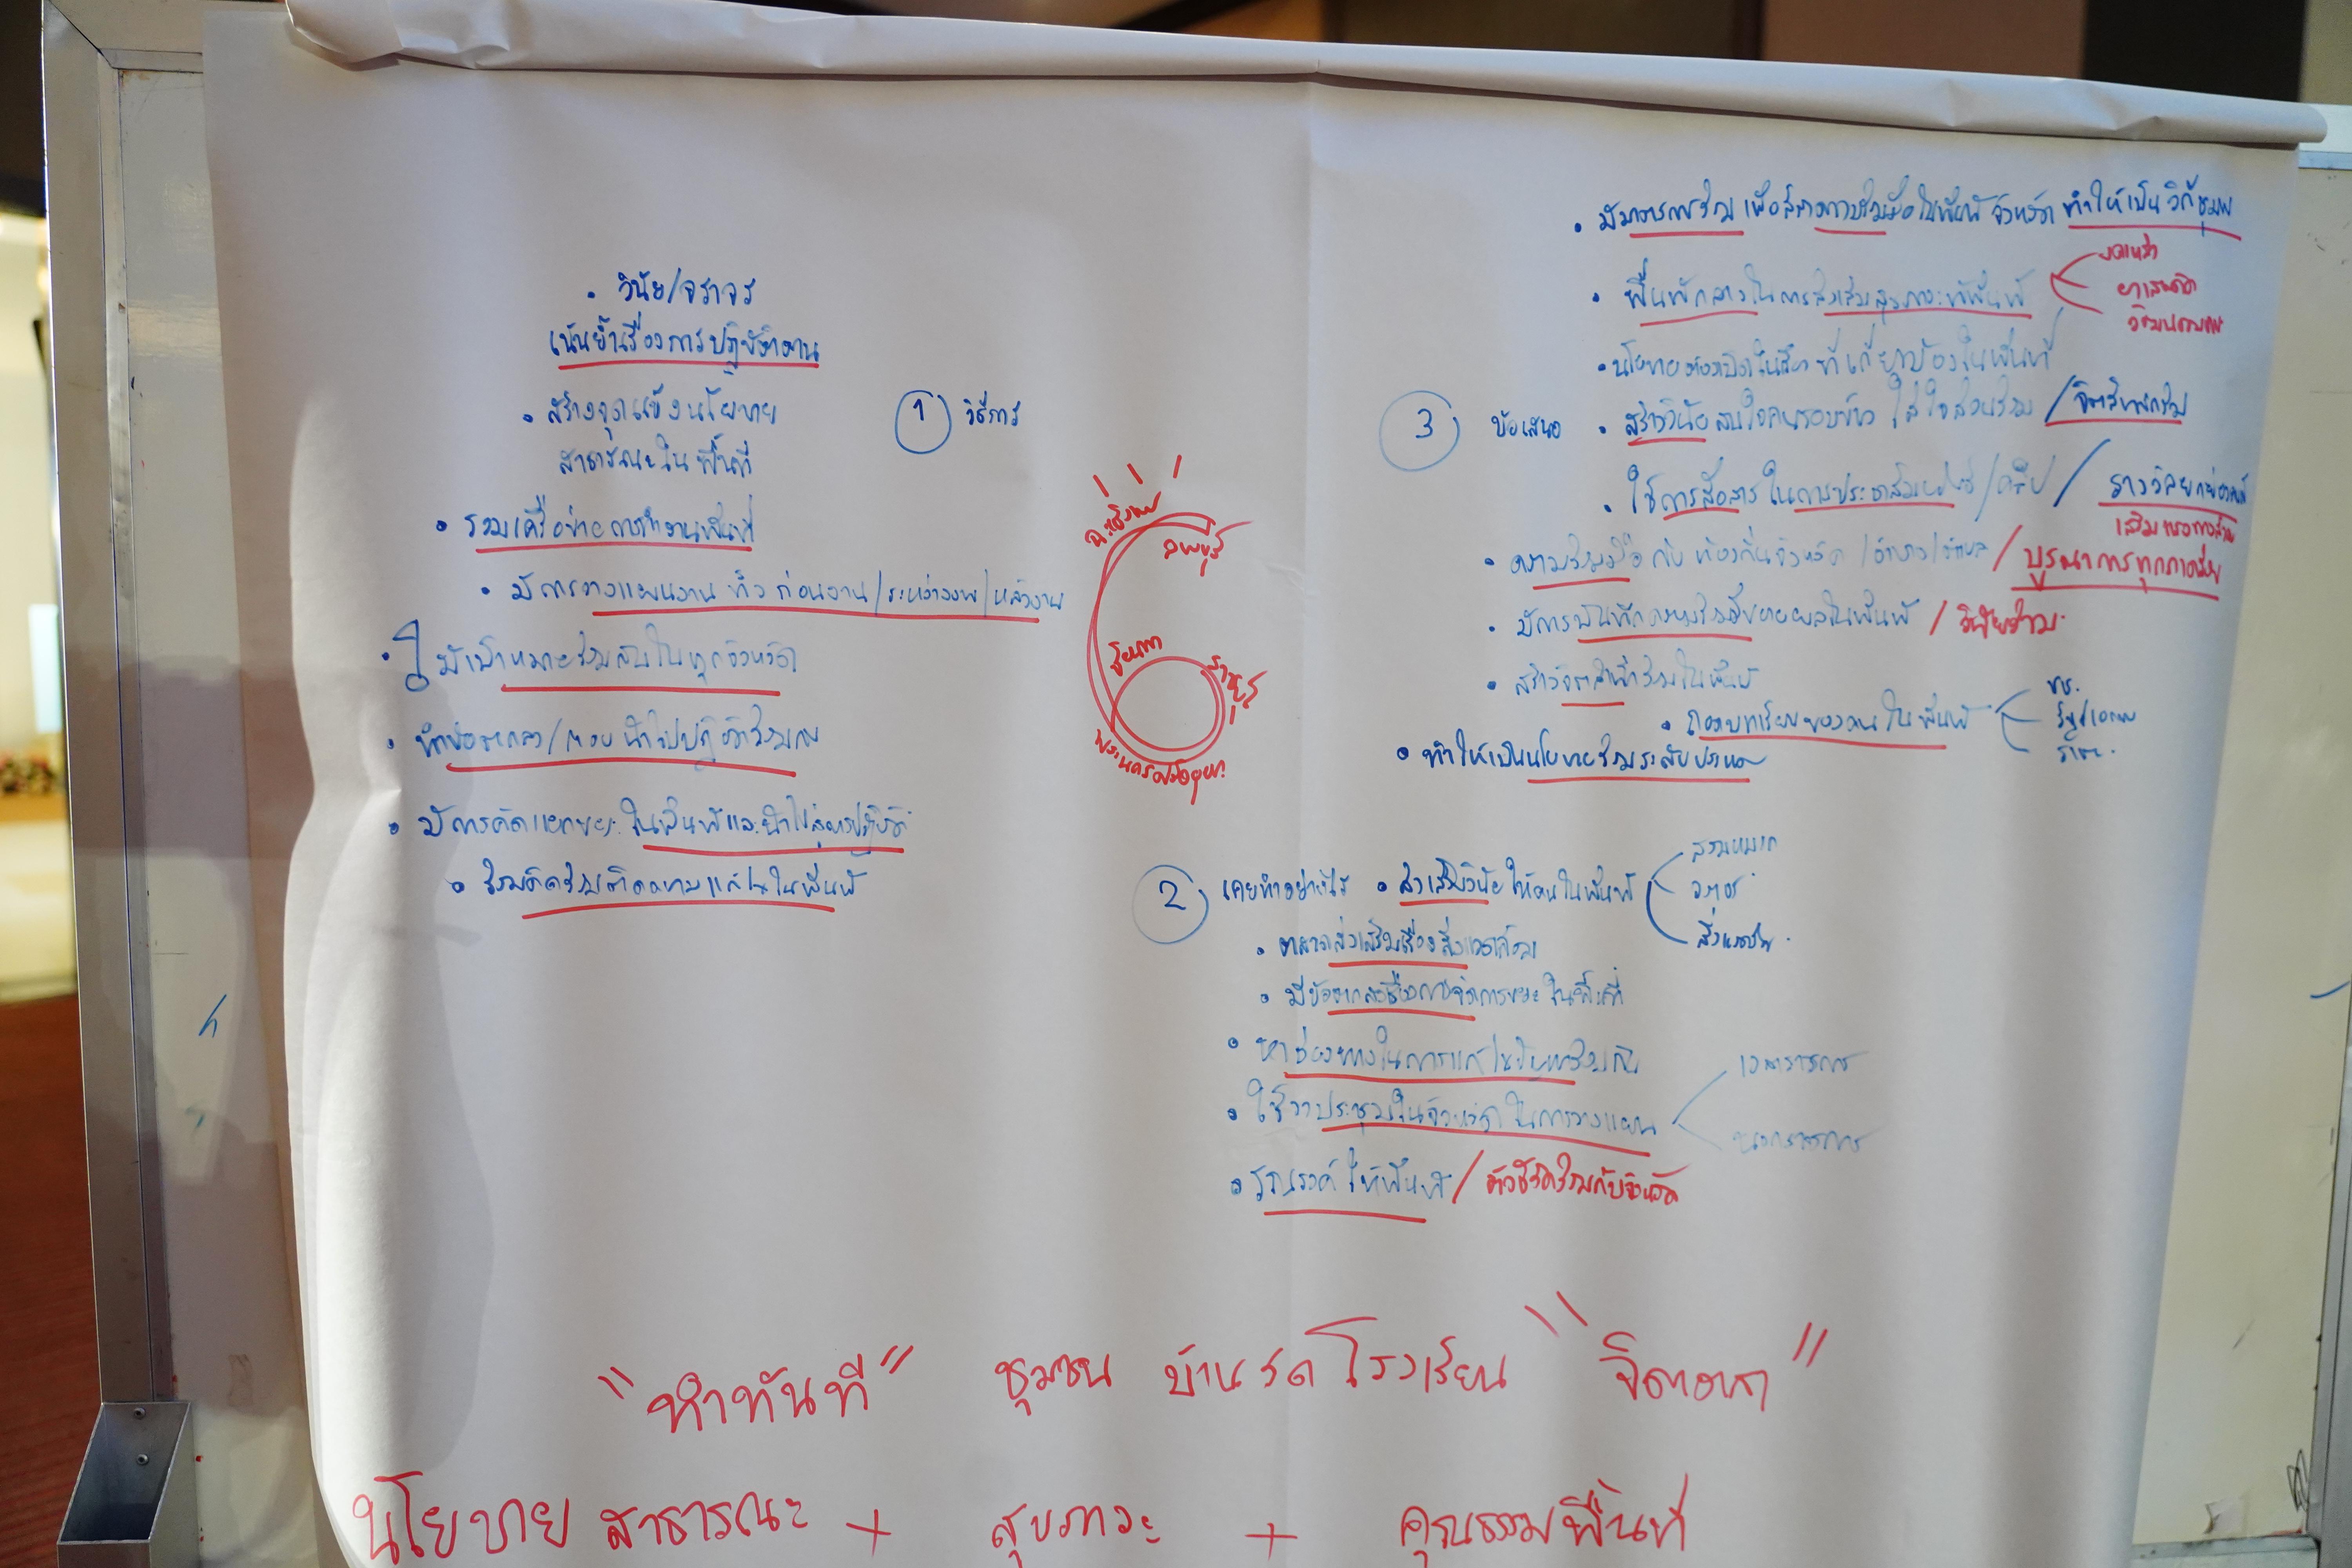 • วินัย/จราจร
เน้นย้ำเรื่องการปฏิบัติงาน
• สร้างจุดแข็งนโยบาย
สาธารณะในพื้นที่
• รวมเครือข่ายการทำงานพื้นที่
• มีการวางแผนงาน ทั้ง ก่อนงาน/ระหว่างงาน/หลังงาน
• มีเป้าหมายร่วมกันในทุกจังหวัด
• นำไปปฏิบัติร่วมกัน
• มีการคัดแยกขยะ ในพื้นที่และนำไปสู่การปฏิบัติ
• ร่วมคิดร่วมติดตามแก้ไขในพื้นที่
1 วิธีการ
ฉะเชิงเทรา
ลพบุรี
ชัยนาท
พระนครศรีอยุธยา
3 ข้อเสนอ
• มีมาตรการร่วม เพื่อสร้างความร่วมมือในพื้นที่ จังหวัด ทำให้เป็นวิถีชุมชน
• พื้นที่กลางในการส่งเสริมสุขภาวะที่พื้นที่
ยาเสพติด
• นโยบาย ที่เกี่ยวข้องในพื้นที่
• สร้างวินัย สนใจคนรอบข้าง ใส่ใจส่วนรวม
• ใช้การสื่อสารในการประชาสัมพันธ์/คลิป / รางวัลยกย่อง
• ความร่วมมือ กับ ท้องถิ่นจังหวัด/อำเภอ/ตำบล / บูรณาการทุกภาคส่วน
• มีการบันทึกความร่วมมือขยายผลในพื้นที่
• สร้างจิตสำนึกร่วมในพื้นที่
• ถอดบทเรียนของงานในพื้นที่
• ทำให้เป็นนโยบายร่วมระดับประเทศ
2 เคยทำอย่างไร • ส่งเสริมวินัยให้คนในพื้นที่
สวมหมวก
จราจร
• ตลาดส่งเสริมเรื่องสิ่งแวดล้อม
• มีข้อตกลงเรื่องการจัดการขยะในพื้นที่
• หาช่องทางในการแก้ไขปัญหาร่วมกัน
• ใช้วาระประชุมในจังหวัดในการวางแผน
• รณรงค์ให้พื้นที่ / ตัวชี้วัดร่วมกับจังหวัด
"ทำทันที" ชุมชน บ้าน วัด โรงเรียน "จิตอาสา"
นโยบาย สาธารณะ + สุขภาวะ + คุณธรรมพื้นที่